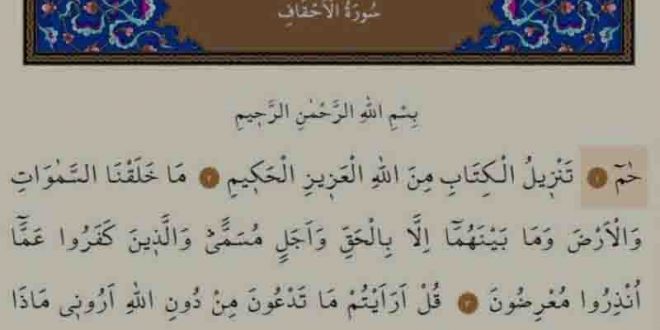 سُورَةُ الْاَحْقَافِ
بِسْمِ اللّٰهِ الرَّحْمٰنِ الرَّح۪يمِ
حٰمٓ ١ تَنْز۪يلُ الْكِتَابِ مِنَ اللّٰهِ الْعَز۪يزِ الْحَك۪يمِ ٢ مَا خَلَقْنَا السَّمٰوَاتِ
وَالْاَرْضَ وَمَا بَيْنَهُمَٓا اِلَّا بِالْحَقِّ وَاَجَلٍ مُسَمًّىۜ وَالَّذ۪ينَ كَفَرُوا عَمَّٓا
اُنْذِرُوا مُعْرِضُونَ ٣ قُلْ اَرَاَيْتُمْ مَا تَدْعُونَ مِنْ دُونِ اللّٰهِ اَرُون۪ي مَاذَا